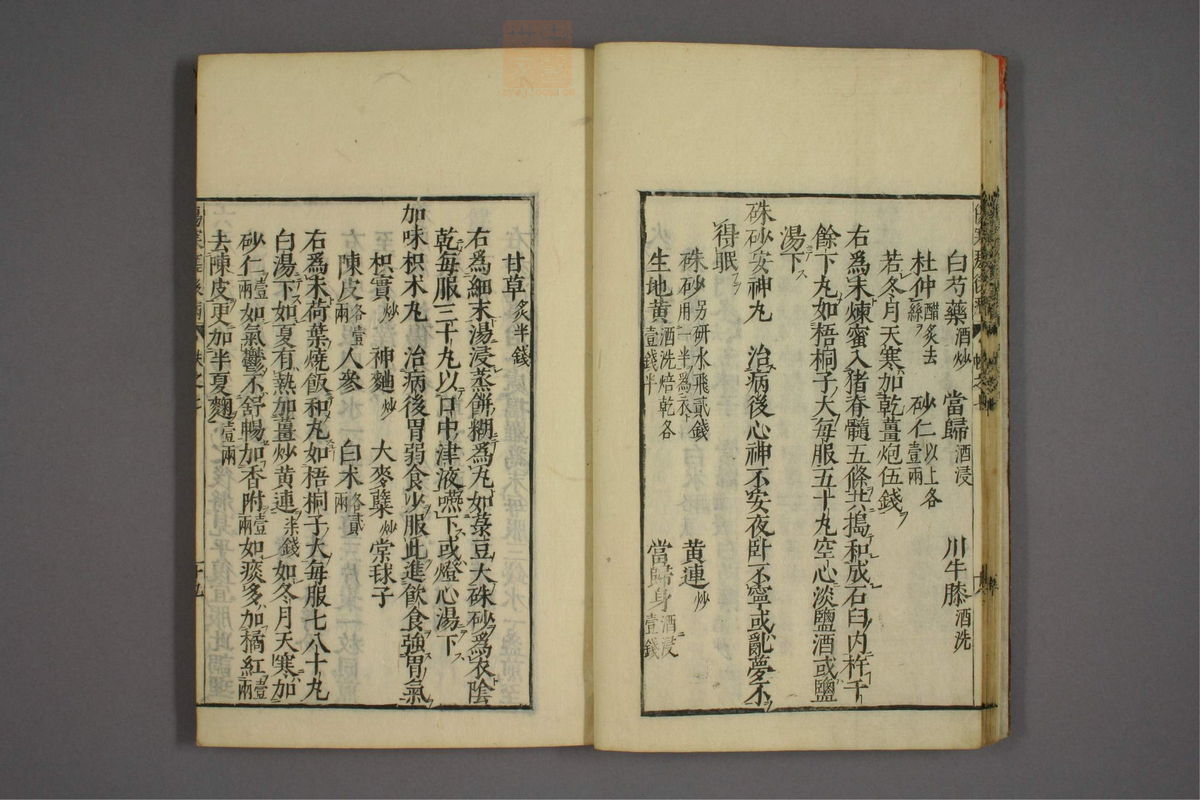 白芍藥酒炒 當歸酒浸 川牛膝酒洗
杜仲醋炙去絲ヲ 砂仁以上各壹兩
若冬月天寒加乾薑炮伍錢
右爲末煉蜜入猪脊髓五條共搗和成石臼內杵千
餘下丸如梧桐子大每服五十丸空心淡鹽酒或鹽
湯下
硃砂安神丸 治病後心神不安夜卧不寧或亂夢不
得眠
硃砂另研水飛貳錢用一半爲衣 黃連炒
生地黃酒洗焙乾各壹錢半 當歸身酒浸壹錢
甘草炙半錢
右爲細末湯浸蒸餅糊爲丸如菉豆大硃砂爲衣陰
乾每服三十丸以口中津液嚥下或燈心湯下
加味枳朮丸 治病後胃弱食少服此進飲食強胃氣
枳實炒 神麯炒 大麥蘗炒 棠毬子
陳皮各壹兩 人參 白朮各貳兩
右爲末荷葉燒飯和丸如梧桐子大每服七八十丸
白湯下如夏有熱加薑炒黃連柒錢如冬月天寒加
砂仁壹兩如氣鬱不舒暢加香附壹兩如痰多加橘紅壹兩
去陳皮更加半夏麴壹兩